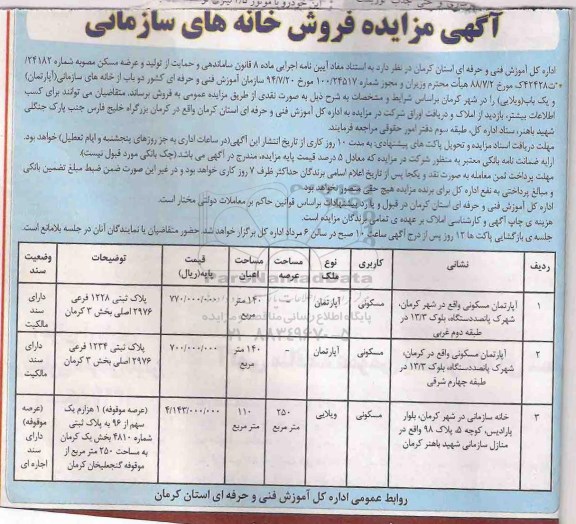 آگهی مزایده فروش خانه های سازمانی
اداره کل آموزش فنی و حرفه ای استان کرمان در نظر دارد به استناد مفاد آیین نامه اجرایی ماده ۸ قانون ساماندهی و حمایت از تولید و عرضه مسکن مصوبه شماره ۲۴۱۸۲/
ت۴۲۴۲۸ک مورخ ۸۸/۷/۲ هیأت محترم وزیران و مجوز شماره ۱۰۰/۲۴۵۱۷ مورخ ۹۴/۷/۲۰ سازمان آموزش فنی و حرفه ای کشور دو باب از خانه های سازمانی(آپارتمان)
و یک باب(ویلایی) را در شهر کرمان براساس شرایط و مشخصات به شرح ذیل به صورت نقدی از طریق مزایده عمومی به فروش برساند، متقاضیان می توانند برای کسب
اطلاعات بیشتر، بازدید از املاک و دریافت اوراق شرکت در مزایده به اداره کل آموزش فنی و حرفه ای استان کرمان واقع در کرمان بزرگراه خلیج فارس جنب پارک جنگلی
شهید باهنر، ستاد اداره کل، طبقه سوم دفتر امور حقوقی مراجعه فرمایند.
مهلت دریافت اسناد مزایده و تحویل پاکت های پیشنهادی به مدت ۱۰ روز کاری از تاریخ انتشار این آگهی(در ساعات اداری به جز روزهای پنجشنبه و ایام تعطیل) خواهد بود.
ارایه ضمانت نامه بانکی معتبر به منظور شرکت در مزایده که معادل ۵ درصد قیمت پایه مزایده، مندرج در آگهی می باشد (چک بانکی مورد قبول نیست).
مهلت پرداخت ثمن معامله به صورت نقد و یکجا پس از تاریخ اعلام اسامی برندگان حداکثر ظرف ۷ روز کاری خواهد بود و در غیر این صورت ضمن ضبط مبلغ تضمین بانکی
و مبالغ پرداختی به نفع اداره کل برای برنده مزایده هیچ حقی متصور نخواهد بود.
اداره کل آموزش فنی و حرفه ای استان کرمان در قبول و یا رد پیشنهادات براساس قوانین حاکم بر معاملات دولتی مختار است.
هزینه ی چاپ آگهی و کارشناسی املاک بر عهده ی تمامی برندگان مزایده است.
جلسه ی بازگشایی پاکت ها ۱۲ روز پس از درج آگهی ساعت ۱۰ صبح در سالن ۶ مرداد اداره کل برگزار خواهد شد. حضور متقاضیان یا نمایندگان آنان در جلسه بلامانع است.
ردیف نشانی کاربری نوع ملک مساحت عرصه مساحت اعیان قیمت پایه(ریال) توضیحات وضعیت سند
۱ آپارتمان مسکونی واقع در شهر کرمان، شهرک پانصددستگاه، بلوک ۱۳/۳ در طبقه دوم غربی مسکونی آپارتمان - ۱۴۰ متر مربع ۷۷۰/۰۰۰/۰۰۰ پلاک ثبتی ۱۲۲۸ فرعی ۲۹۷۶ اصلی بخش ۳ کرمان دارای سند مالکیت
۲ آپارتمان مسکونی واقع در کرمان، شهرک پانصددستگاه، بلوک ۱۳/۳ در طبقه چهارم شرقی مسکونی آپارتمان - ۱۴۰ متر مربع ۷۰۰/۰۰۰/۰۰۰ پلاک ثبتی ۱۲۳۴ فرعی ۲۹۷۶ اصلی بخش ۳ کرمان دارای سند مالکیت
۳ خانه سازمانی در شهر کرمان، بلوار پارادیس، کوچه ۵، پلاک ۹۸ واقع در منازل سازمانی شهید باهنر کرمان مسکونی ویلایی ۲۵۰ متر مربع ۱۱۰ متر مربع ۴/۱۴۳/۰۰۰/۰۰۰ (عرصه موقوفه) ۱ هزارم یک سهم از ۹۶ به پلاک ثبتی شماره ۴۸۱۰ بخش یک کرمان به مساحت ۲۵۰ متر مربع از موقوفه گنجعلیخان کرمان (عرصه موقوفه) دارای سند اجاره ای
روابط عمومی اداره کل آموزش فنی و حرفه ای استان کرمان